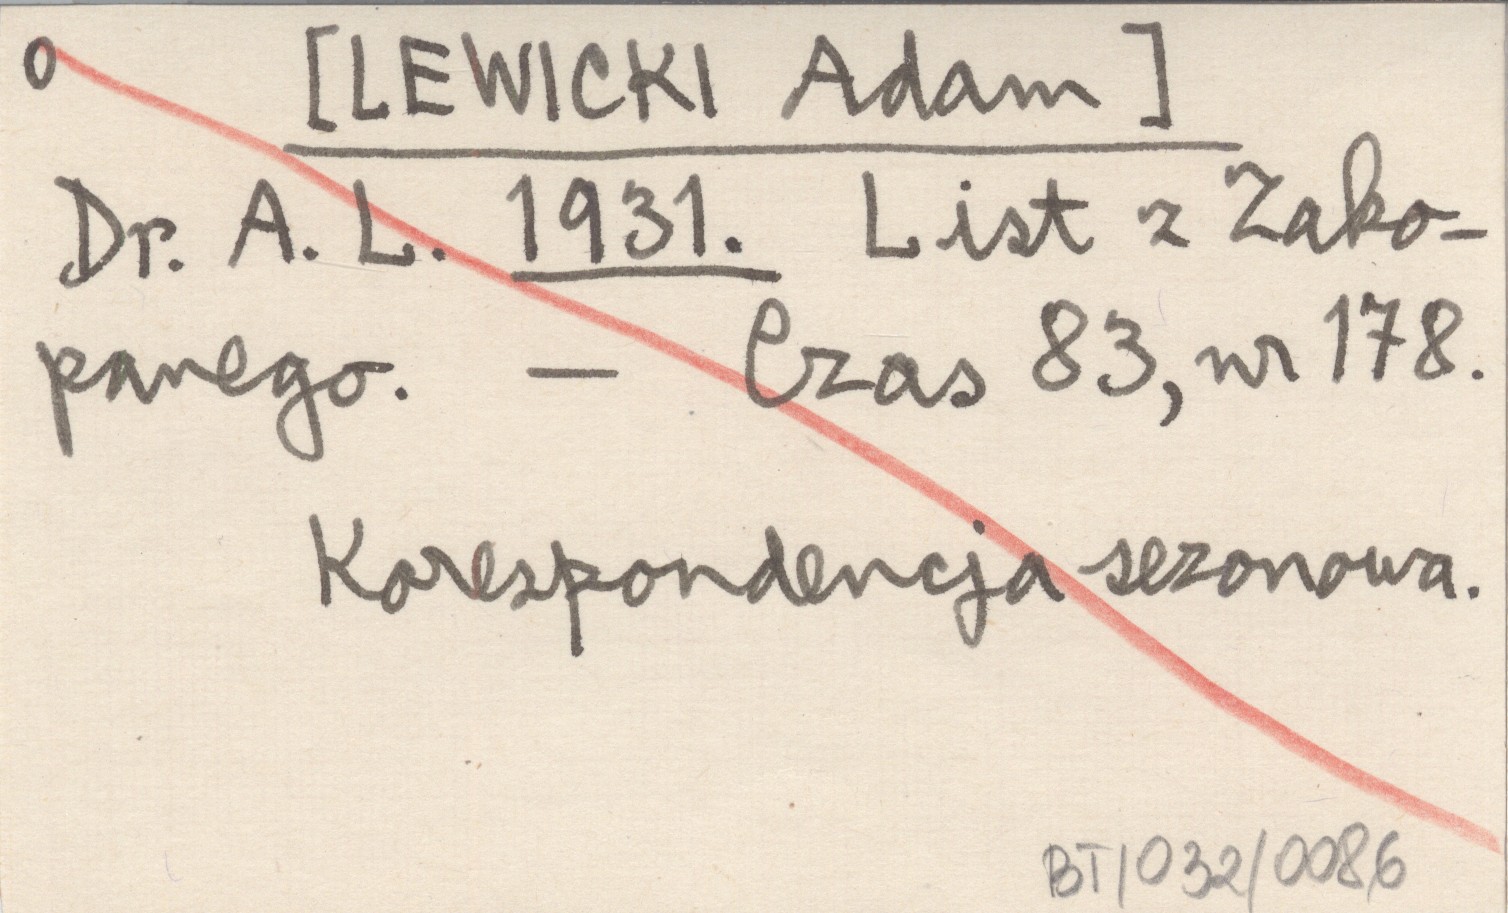 o [LEWICKI Adam]
Dr. A. L. 1931. List z Zako-
panego. — Czas 83, nr 178.
Korespondencja sezonowa.
BT/032/0086